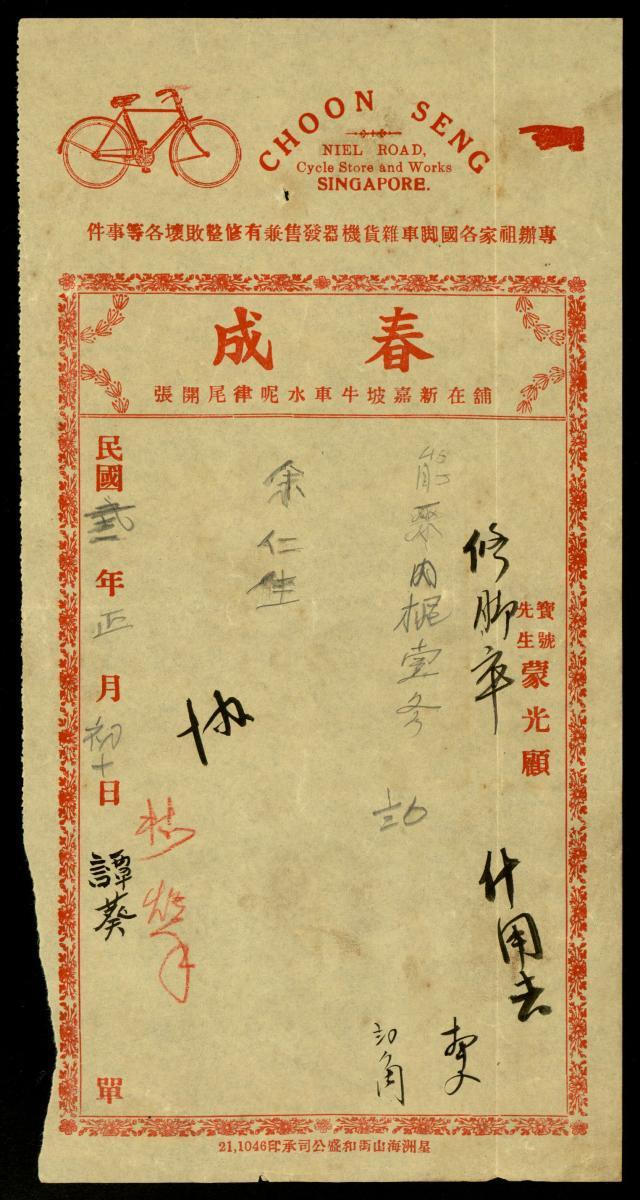 CHOON SENG
NIEL ROAD,
Cycle Store and Works
SINGAPORE.
專辦祖家各國脚車雜貨機器發售兼有修整敗壞各等事件
春成
舖在新嘉坡牛車水呢律尾開張
寶號
先生
蒙光顧
修脚車
什用去
余仁生
民國 年正月初十日
譚葵
單
星洲海山街和盛公司承印21,1046